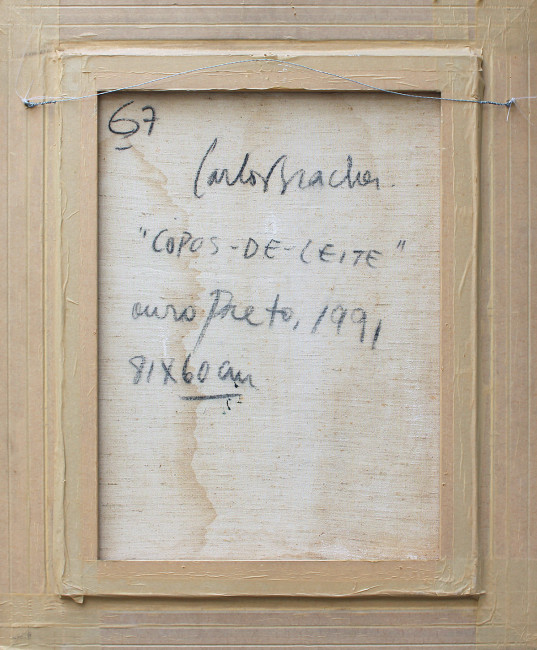 67
Carlos Bracher
"COPOS-DE-LEITE"
ouro Preto, 1991
81X60 cm